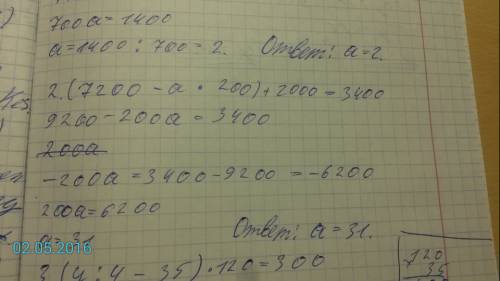 700a = 1400
a = 1400 : 700 = 2. Ответ: a = 2.
2. (7200 - a · 200) + 2000 = 3400
9200 - 200a = 3400
200a
-200a = 3400 - 9200 = -6200
200a = 6200
a = 31 Ответ: a = 31.
02.05.2016
3 (y : 4 - 35) · 120 = 300
120
35